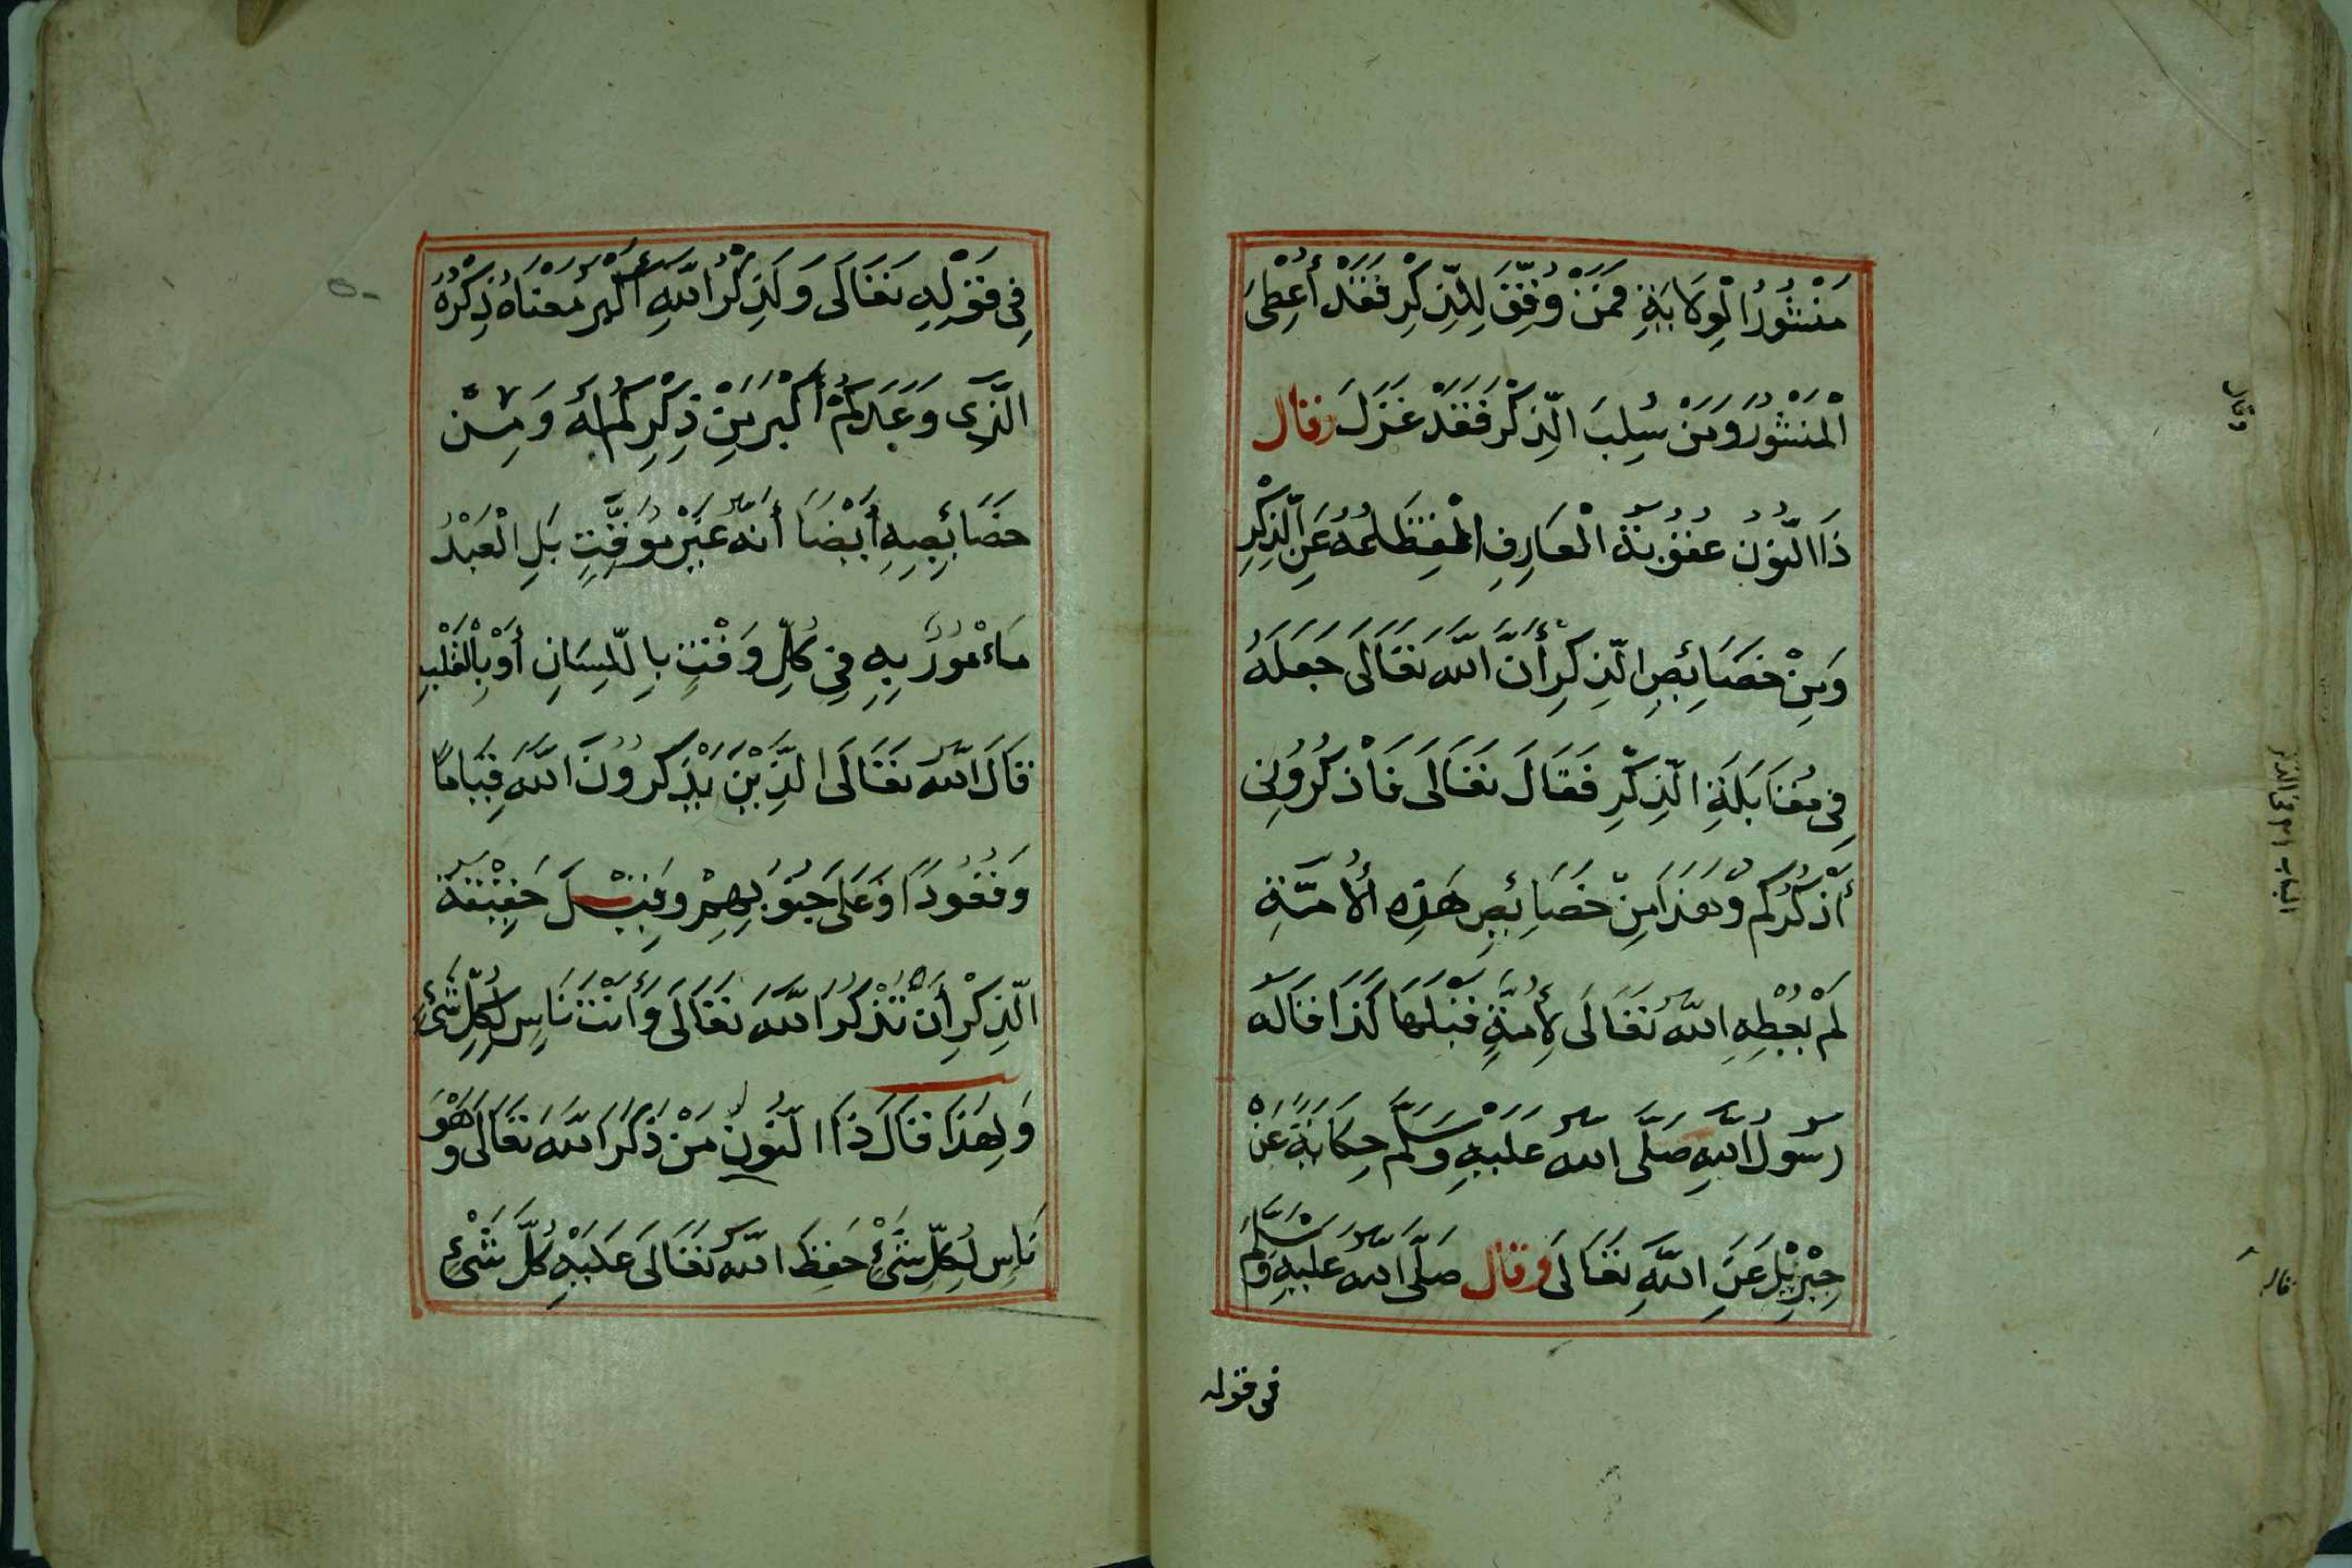 مَنْشُورُ الْوِلَايَةِ فَمَنْ وُفِّقَ لِلذِّكْرِ فَقَدْ أُعْطِيَ
الْمَنْشُورَ وَمَنْ سُلِبَ الذِّكْرَ فَقَدْ عَزَلَ وقال
ذَا النُّونُ عُقُوبَةُ الْعَارِفِ انْقِطَاعُهُ عَنِ الذِّكْرِ
وَمِنْ خَصَائِصِ الذِّكْرِ أَنَّ اللّٰهَ تَعَالَى جَعَلَهُ
فِي مُقَابَلَةِ الذِّكْرِ فَقَالَ تَعَالَى فَاذْكُرُونِي
أَذْكُرْكُمْ وَهَذَا مِنْ خَصَائِصِ هَذِهِ الْأُمَّةِ
لَمْ يُعْطِهِ اللّٰهُ تَعَالَى لِأُمَّةٍ قَبْلَهَا كَذَا قَالَهُ
رَسُولُ اللّٰهِ صَلَّى اللّٰهُ عَلَيْهِ وَسَلَّمَ حِكَايَةً عَنْ
جِبْرِيْلَ عَنِ اللّٰهِ تَعَالَى وَقال صَلَّى اللّٰهُ عَلَيْهِ وَسَلَّمَ
في قوله
فِي قَوْلِهِ تَعَالَى وَلَذِكْرُ اللّٰهِ أَكْبَرُ مَعْنَاهُ ذِكْرُهُ
الَّذِي وَعَدَكُمْ أَكْبَرُ مِنْ ذِكْرِكُمْ لَهُ وَمِنْ
خَصَائِصِهِ أَيْضًا أَنَّهُ غَيْرُ مُوَقَّتٍ بَلِ الْعَبْدُ
مَاءْمُورٌ بِهِ فِي كُلِّ وَقْتٍ بِاللِّسَانِ أَوْ بِالْقَلْبِ
قَالَ اللّٰهُ تَعَالَى الَّذِيْنَ يَذْكُرُونَ اللّٰهَ قِيَامًا
وَقُعُودًا وَعَلَى جُنُوبِهِمْ وَقِيْلَ حَقِيْقَةُ
الذِّكْرِ أَنْ تَذْكُرَ اللّٰهَ تَعَالَى وَأَنْتَ نَاسٍ لِكُلِّ شَيْءٍ
وَلِهَذَا قَالَ ذَا النُّونِ مَنْ ذَكَرَ اللّٰهَ تَعَالَى وَهُوَ
نَاسٍ لِكُلِّ شَيْءٍ حَفِظَ اللّٰهُ تَعَالَى عَلَيْهِ كُلَّ شَيْءٍ